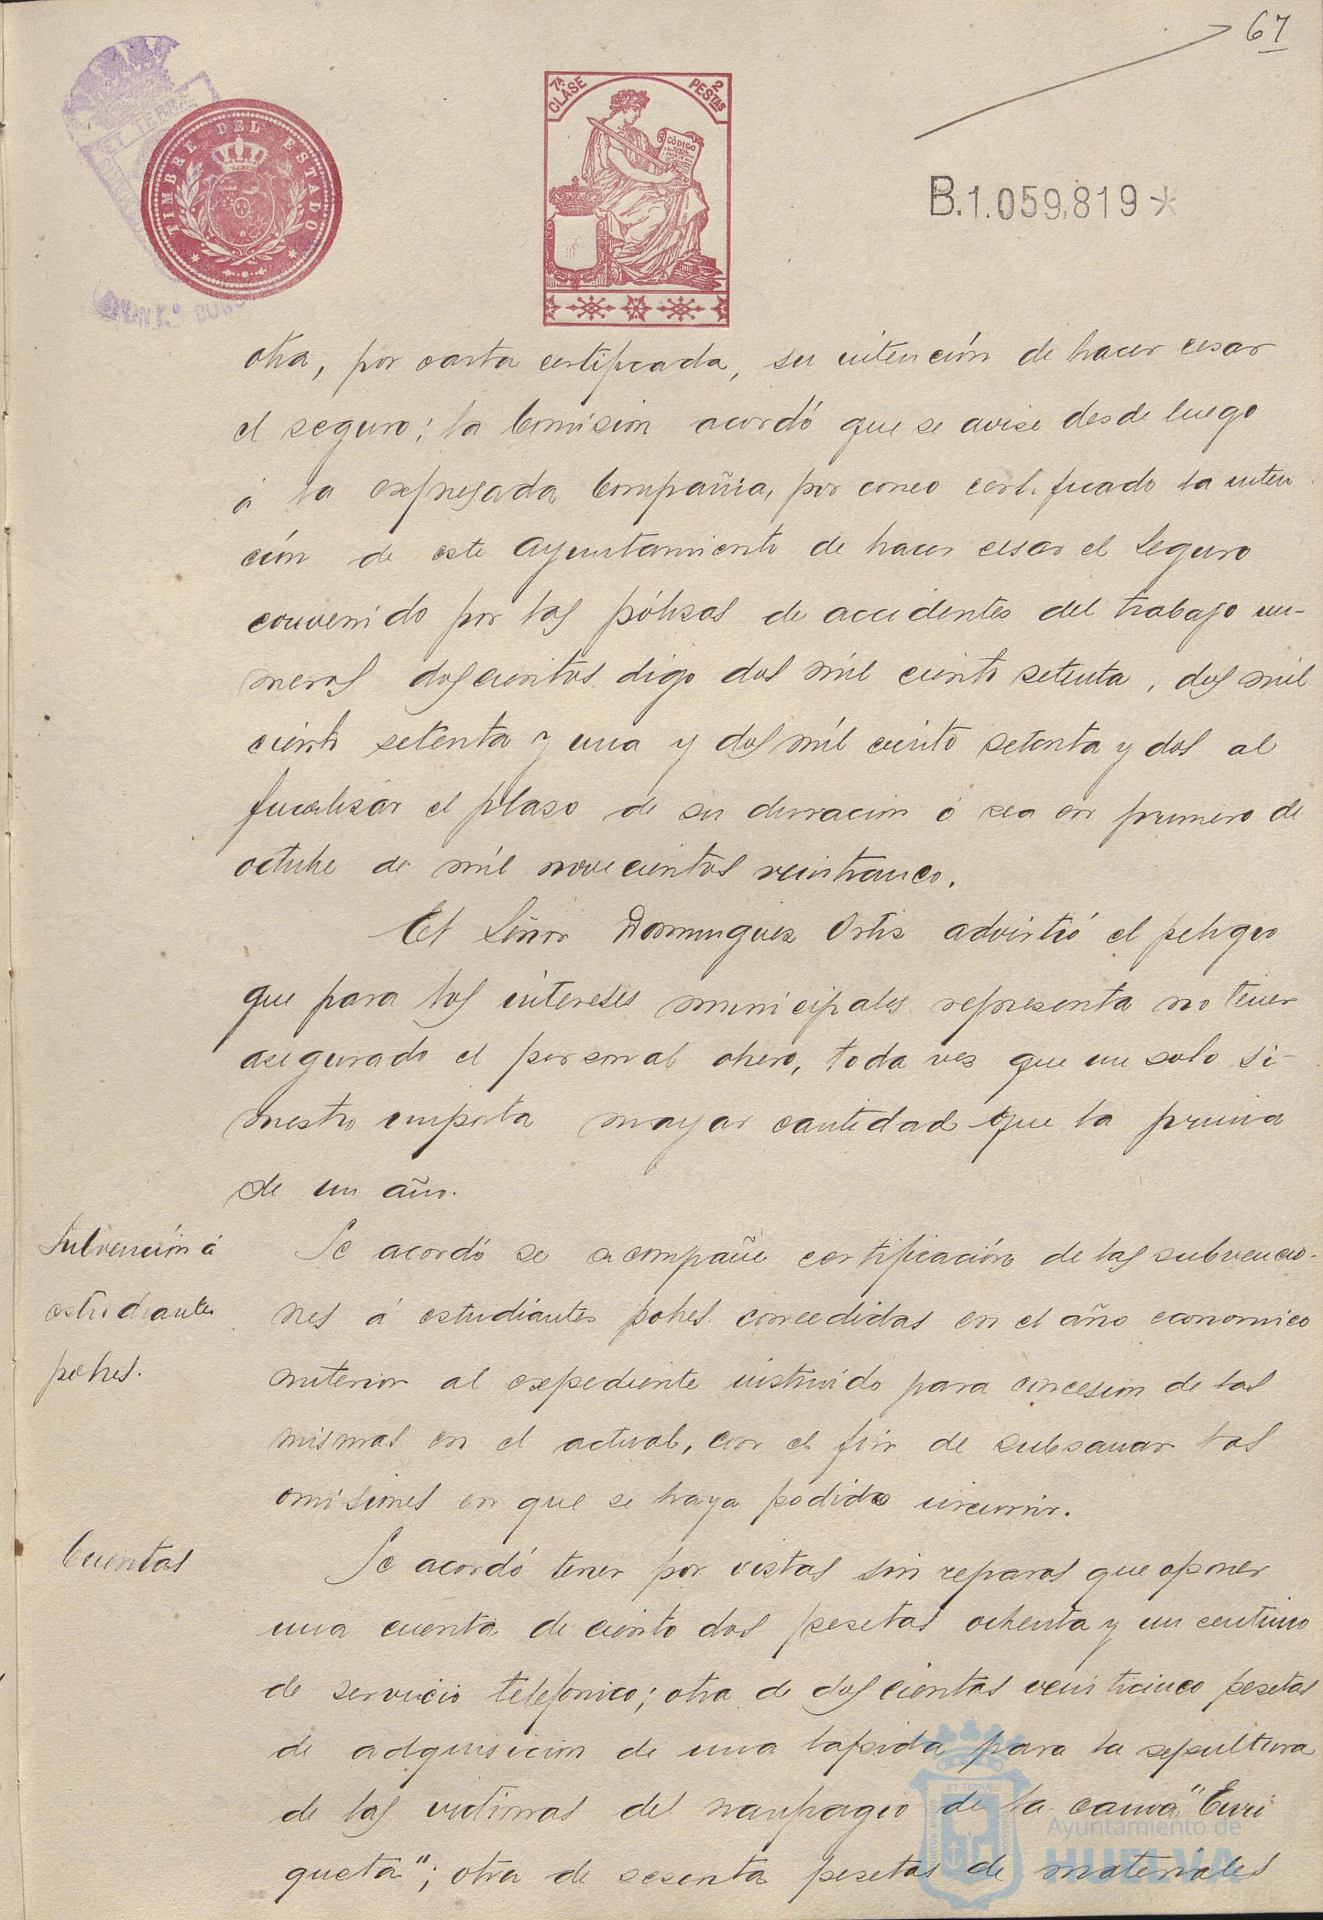 67
TIMBRE DEL ESTADO
7ª CLASE
2 PESTAS
CÓDIGO
B.1.059,819*
otra, por carta certificada, su intención de hacer cesar
el seguro; la Comisión acordó que se avise desde luego
á la expresada Compañia, por correo certificado la inten
ción de este Ayuntamiento de hacer cesar el Seguro
convenido por las pólizas de accidentes del trabajo nu-
meros doscientos digo dos mil ciento setenta, dos mil
ciento setenta y una y dos mil ciento setenta y dos al
finalizar el plazo de su duración ó sea en primero de
octubre de mil novecientos veinticinco.
El Señor Dominguez Ortiz advirtió el peligro
que para los intereses municipales representa no tener
asegurado el personal obrero, toda vez que un solo si-
niestro importa mayor cantidad que la prima
de un año.
Subvención á
estudiantes
pobres.
Se acordó se acompañe certificación de las subvencio-
nes á estudiantes pobres concedidas en el año economico
anterior al expediente instruido para concesion de las
mismas en el actual, con el fin de subsanar las
omisiones en que se haya podido incurrir.
Cuentas
Se acordó tener por vistas sin reparos que oponer
una cuenta de ciento dos pesetas ochenta y un centimo
de servicio telefónico; otra de doscientas veinticinco pesetas
de adquisición de una lapida para la sepultura
de las victimas del naufragio de la canoa "Enri
queta"; otra de sesenta pesetas de materiales
Ayuntamiento de
HUELVA